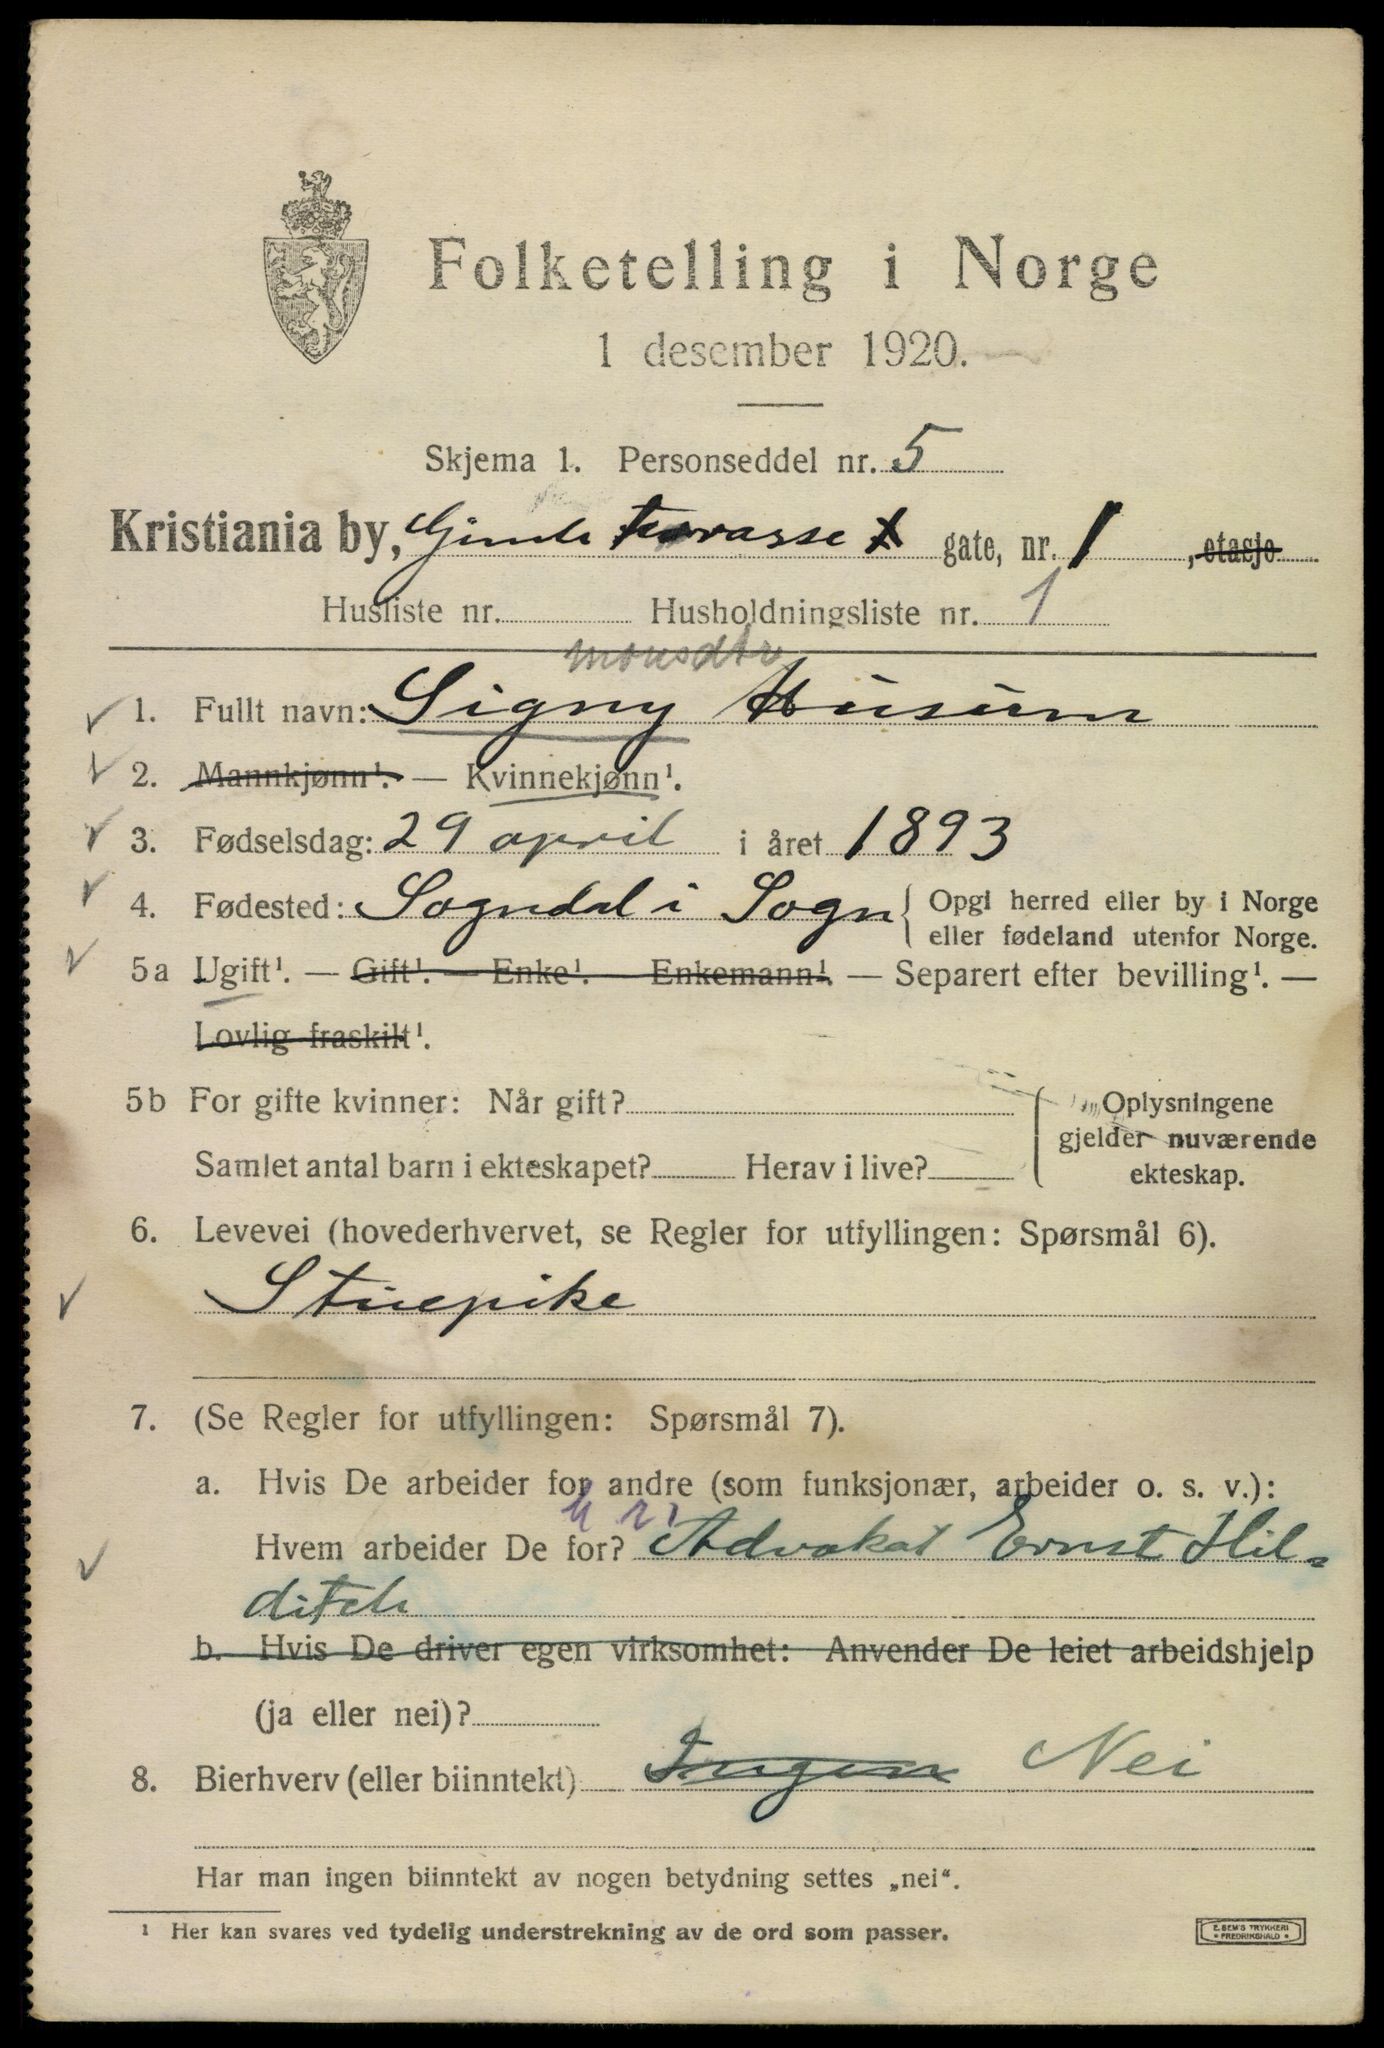 Folketelling i Norge
1 desember 1920.
Skjema 1. Personseddel nr. 5
Kristiania by, Gimle terrasse gate, nr. 1, etasje
Husliste nr. Husholdningsliste nr. 1
monsdtr
1. Fullt navn: Signy Husum
2. Mannkjønn¹. — Kvinnekjønn¹.
3. Fødselsdag: 29 april i året 1893
4. Fødested: Sogndal i Sogn { Opgi herred eller by i Norge
eller fødeland utenfor Norge.
5a Ugift¹. — Gift¹. — Enke¹. Enkemann¹. — Separert efter bevilling¹. —
Lovlig fraskilt¹.
5b For gifte kvinner: Når gift? { Oplysningene
gjelder nuværende
Samlet antal barn i ekteskapet? Herav i live? ekteskap.
6. Levevei (hovederhvervet, se Regler for utfyllingen: Spørsmål 6).
Stuepike
7. (Se Regler for utfyllingen: Spørsmål 7).
a. Hvis De arbeider for andre (som funksjonær, arbeider o. s. v.):
Hvem arbeider De for? Advokat Ernst Hil-
ditch
b. Hvis De driver egen virksomhet: Anvender De leiet arbeidshjelp
(ja eller nei)?
8. Bierhverv (eller biinntekt) Ingen Nei
Har man ingen biinntekt av nogen betydning settes „nei“.
¹ Her kan svares ved tydelig understrekning av de ord som passer.
E. SEM'S TRYKKERI
• FREDRIKSHALD •